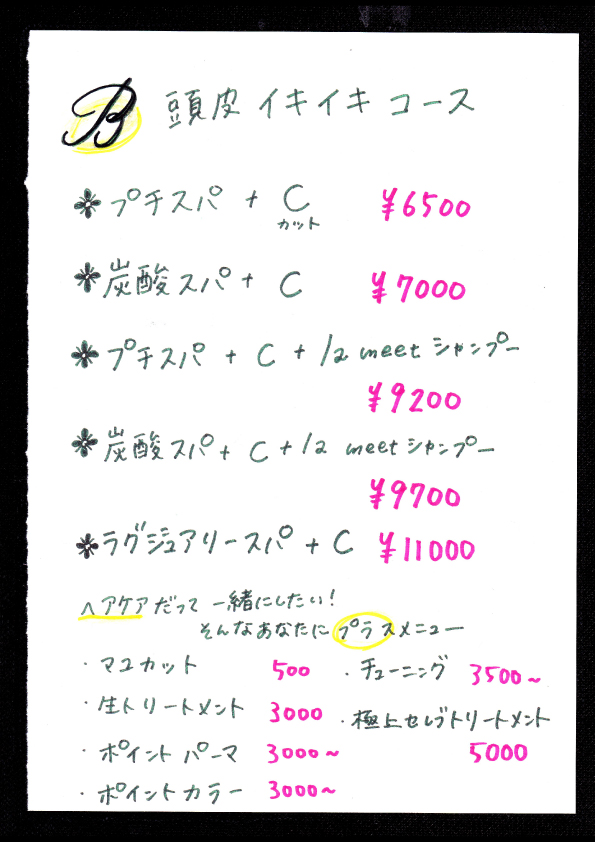 B 頭皮イキイキコース
プチスパ + C ¥6500
カット
炭酸スパ + C ¥7000
プチスパ + C + la meet シャンプー
¥9200
炭酸スパ + C + la meet シャンプー
¥9700
ラグジュアリースパ + C ¥11000
ヘアケアだって一緒にしたい!
そんなあなたにプラスメニュー
・マユカット 500
・チューニング 3500~
・生トリートメント 3000
・極上セレブトリートメント
5000
・ポイントパーマ 3000~
・ポイントカラー 3000~